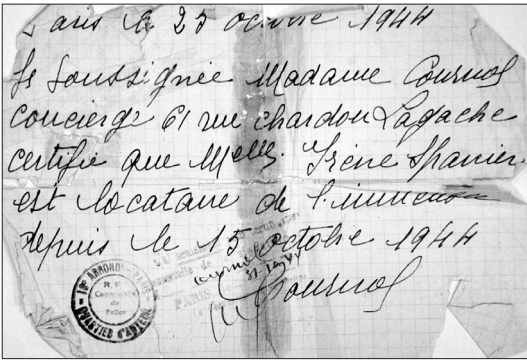 Paris le 25 octobre 1944
Je soussignée Madame Cournol
concierge 61 rue chardon Lagache
certifie que Melle. Irène Spanier
est locataire de l'immeuble
depuis le 15 octobre 1944
Cournol
R. F.
Commissaire
de
Police
QUARTIER D'AUTEUIL